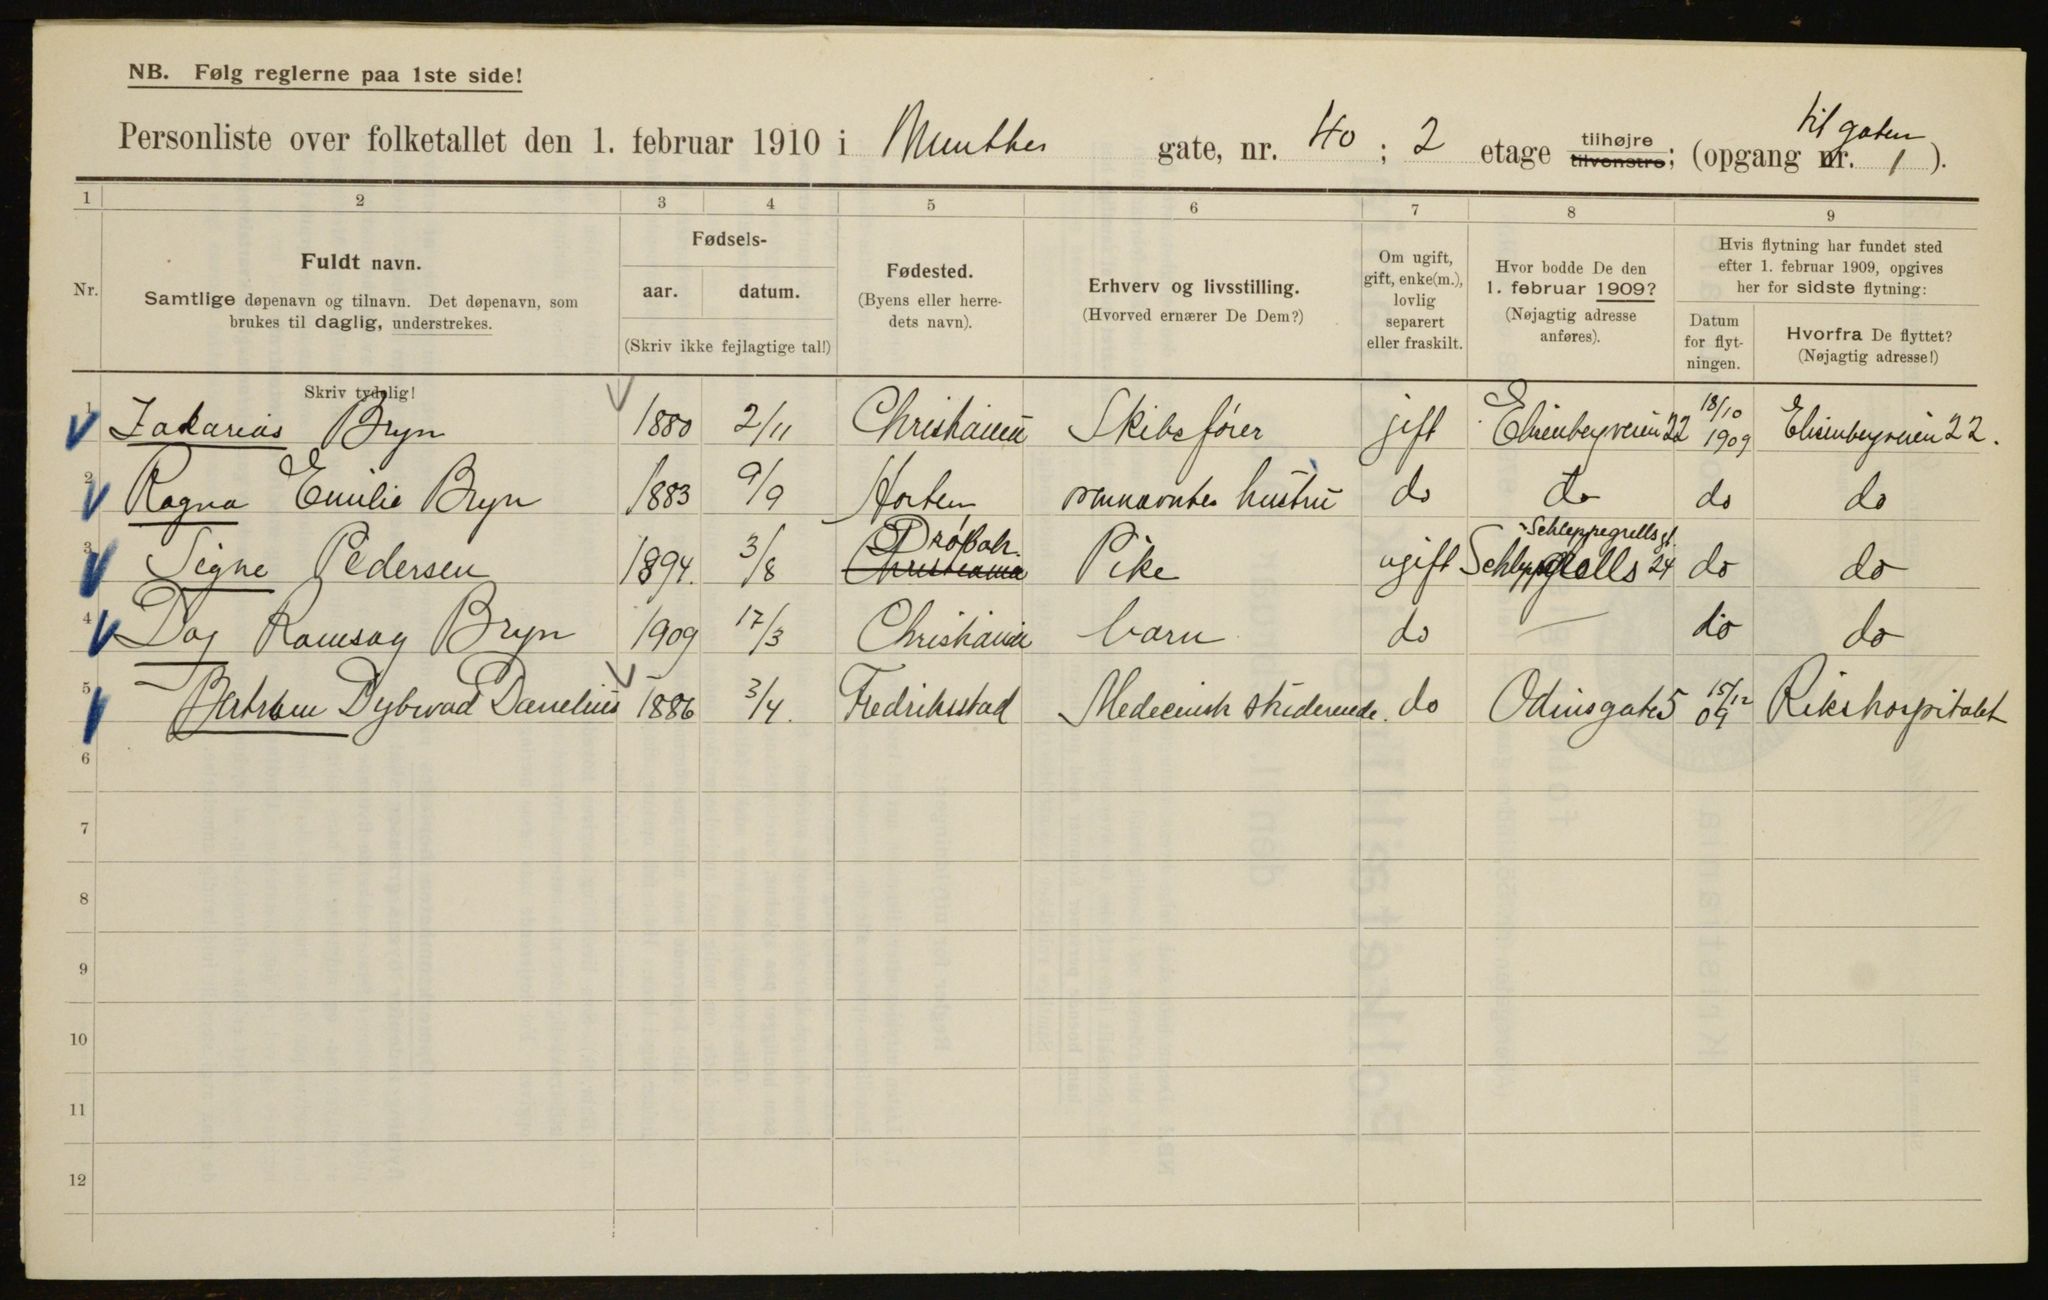 NB. Følg reglerne paa 1ste side!
Personliste over folketallet den 1. februar 1910 i Munthes gate, nr. 40 ; 2 etage tilhøjre tilvenstre; (opgang nr. 1 ).
til gaten
1 2 3 4 5 6 7 8 9
Nr.
Fuldt navn.
Samtlige døpenavn og tilnavn. Det døpenavn, som
brukes til daglig, understrekes.
Skriv tydelig!
Fødsels-
aar. datum.
(Skriv ikke fejlagtige tal!)
Fødested.
(Byens eller herre-
dets navn).
Erhverv og livsstilling.
(Hvorved ernærer De Dem?)
Om ugift,
gift, enke(m.),
lovlig
separert
eller fraskilt.
Hvor bodde De den
1. februar 1909?
(Nøjagtig adresse
anføres).
Hvis flytning har fundet sted
efter 1. februar 1909, opgives
her for sidste flytning:
Datum
for flyt-
ningen.
Hvorfra De flyttet?
(Nøjagtig adresse!)
1 Zakarias Bryn 1880 2/11 Christiania Skibsfører gift Elisenbergveien 22 18/10 1909 Elisenbergveien 22.
2 Ragna Emilie Bryn 1883 9/9 Horten ovennævntes hustru do do do do
3 Signe Pedersen 1894. 3/8 Drøbak. Christiania Pike ugift Schleppegrells 24 Schleppegrells gt. do do
4 Dag Ramsay Bryn 1909 17/3 Christiania barn do — do do
5 Bertram Dybwad Danelius 1886 3/4. Fredriksstad Medecinsk studerende. do Odinsgate 5 15/12 09 Rikshospitalet
6
7
8
9
10
11
12